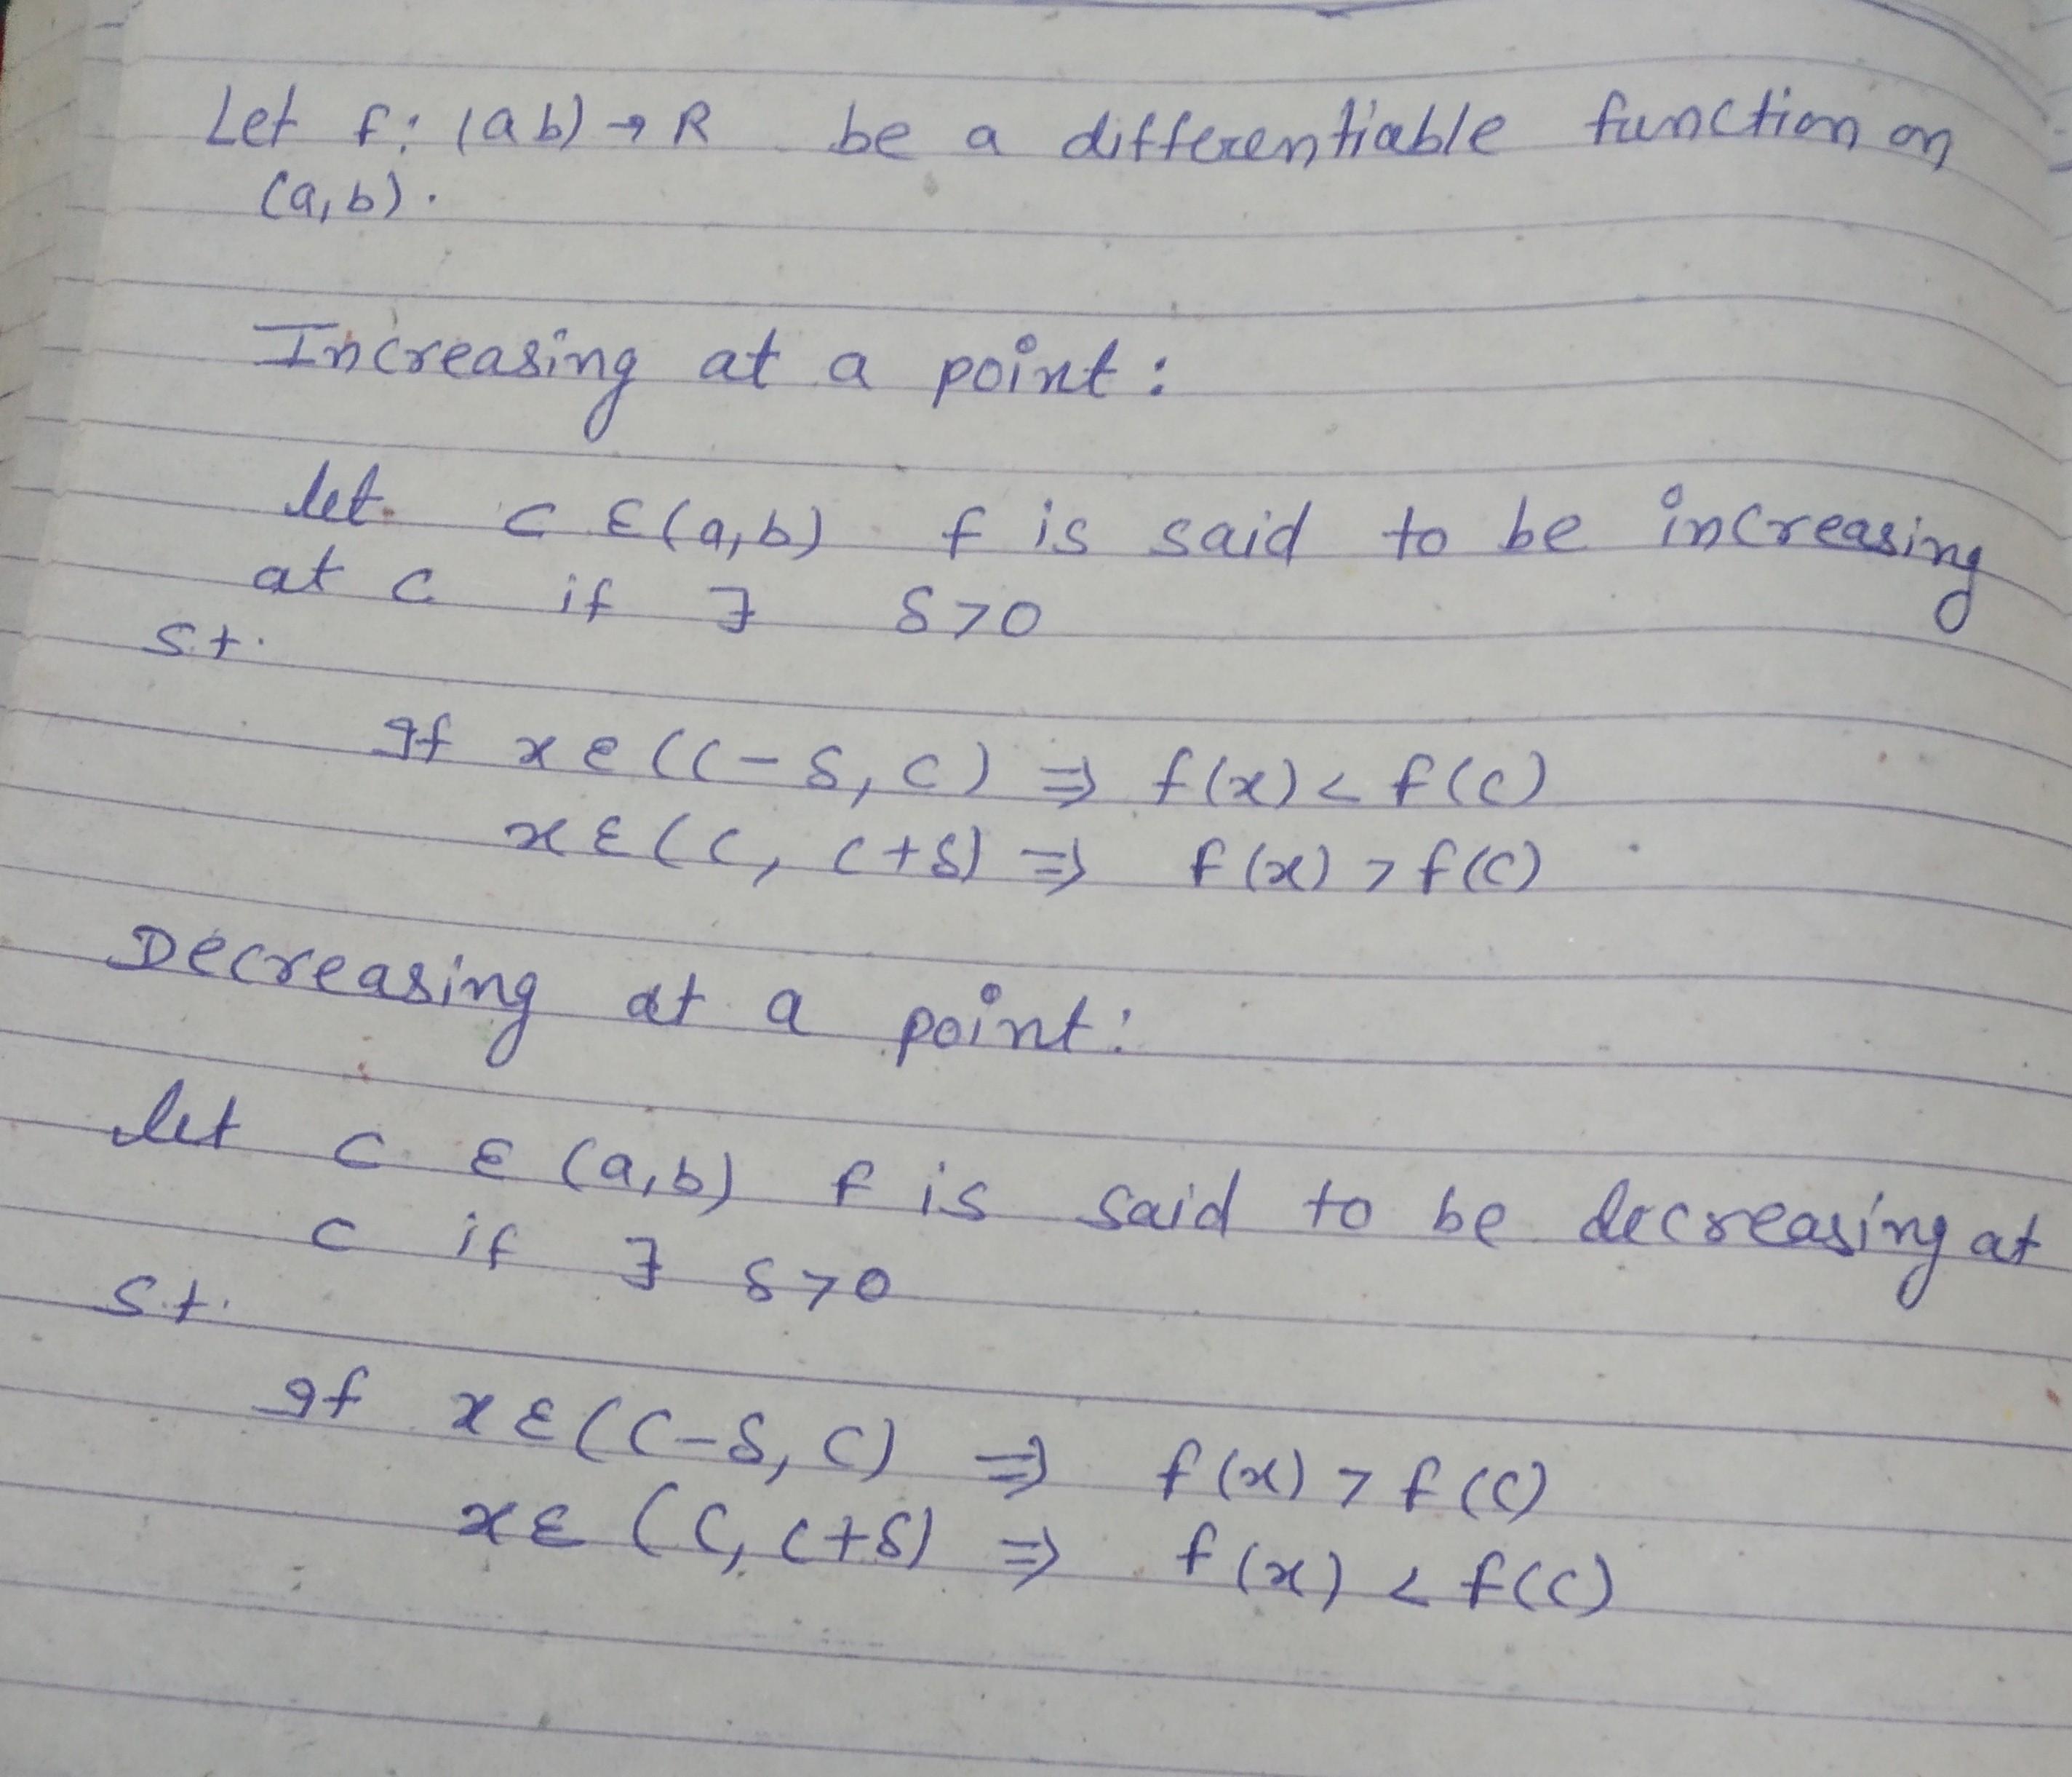 Let f: (a b) → R be a differentiable function on
(a,b).
Increasing at a point:
let c ε (a,b) f is said to be increasing
at c if ∃ δ>0
s.t.
If x ε (c-δ, c) ⇒ f(x) < f(c)
x ε (c, c+δ) ⇒ f(x) > f(c)
Decreasing at a point:
let c ε (a,b) f is said to be decreasing at
c if ∃ δ>0
s.t.
If x ε (c-δ, c) ⇒ f(x) > f(c)
x ε (c, c+δ) ⇒ f(x) < f(c)